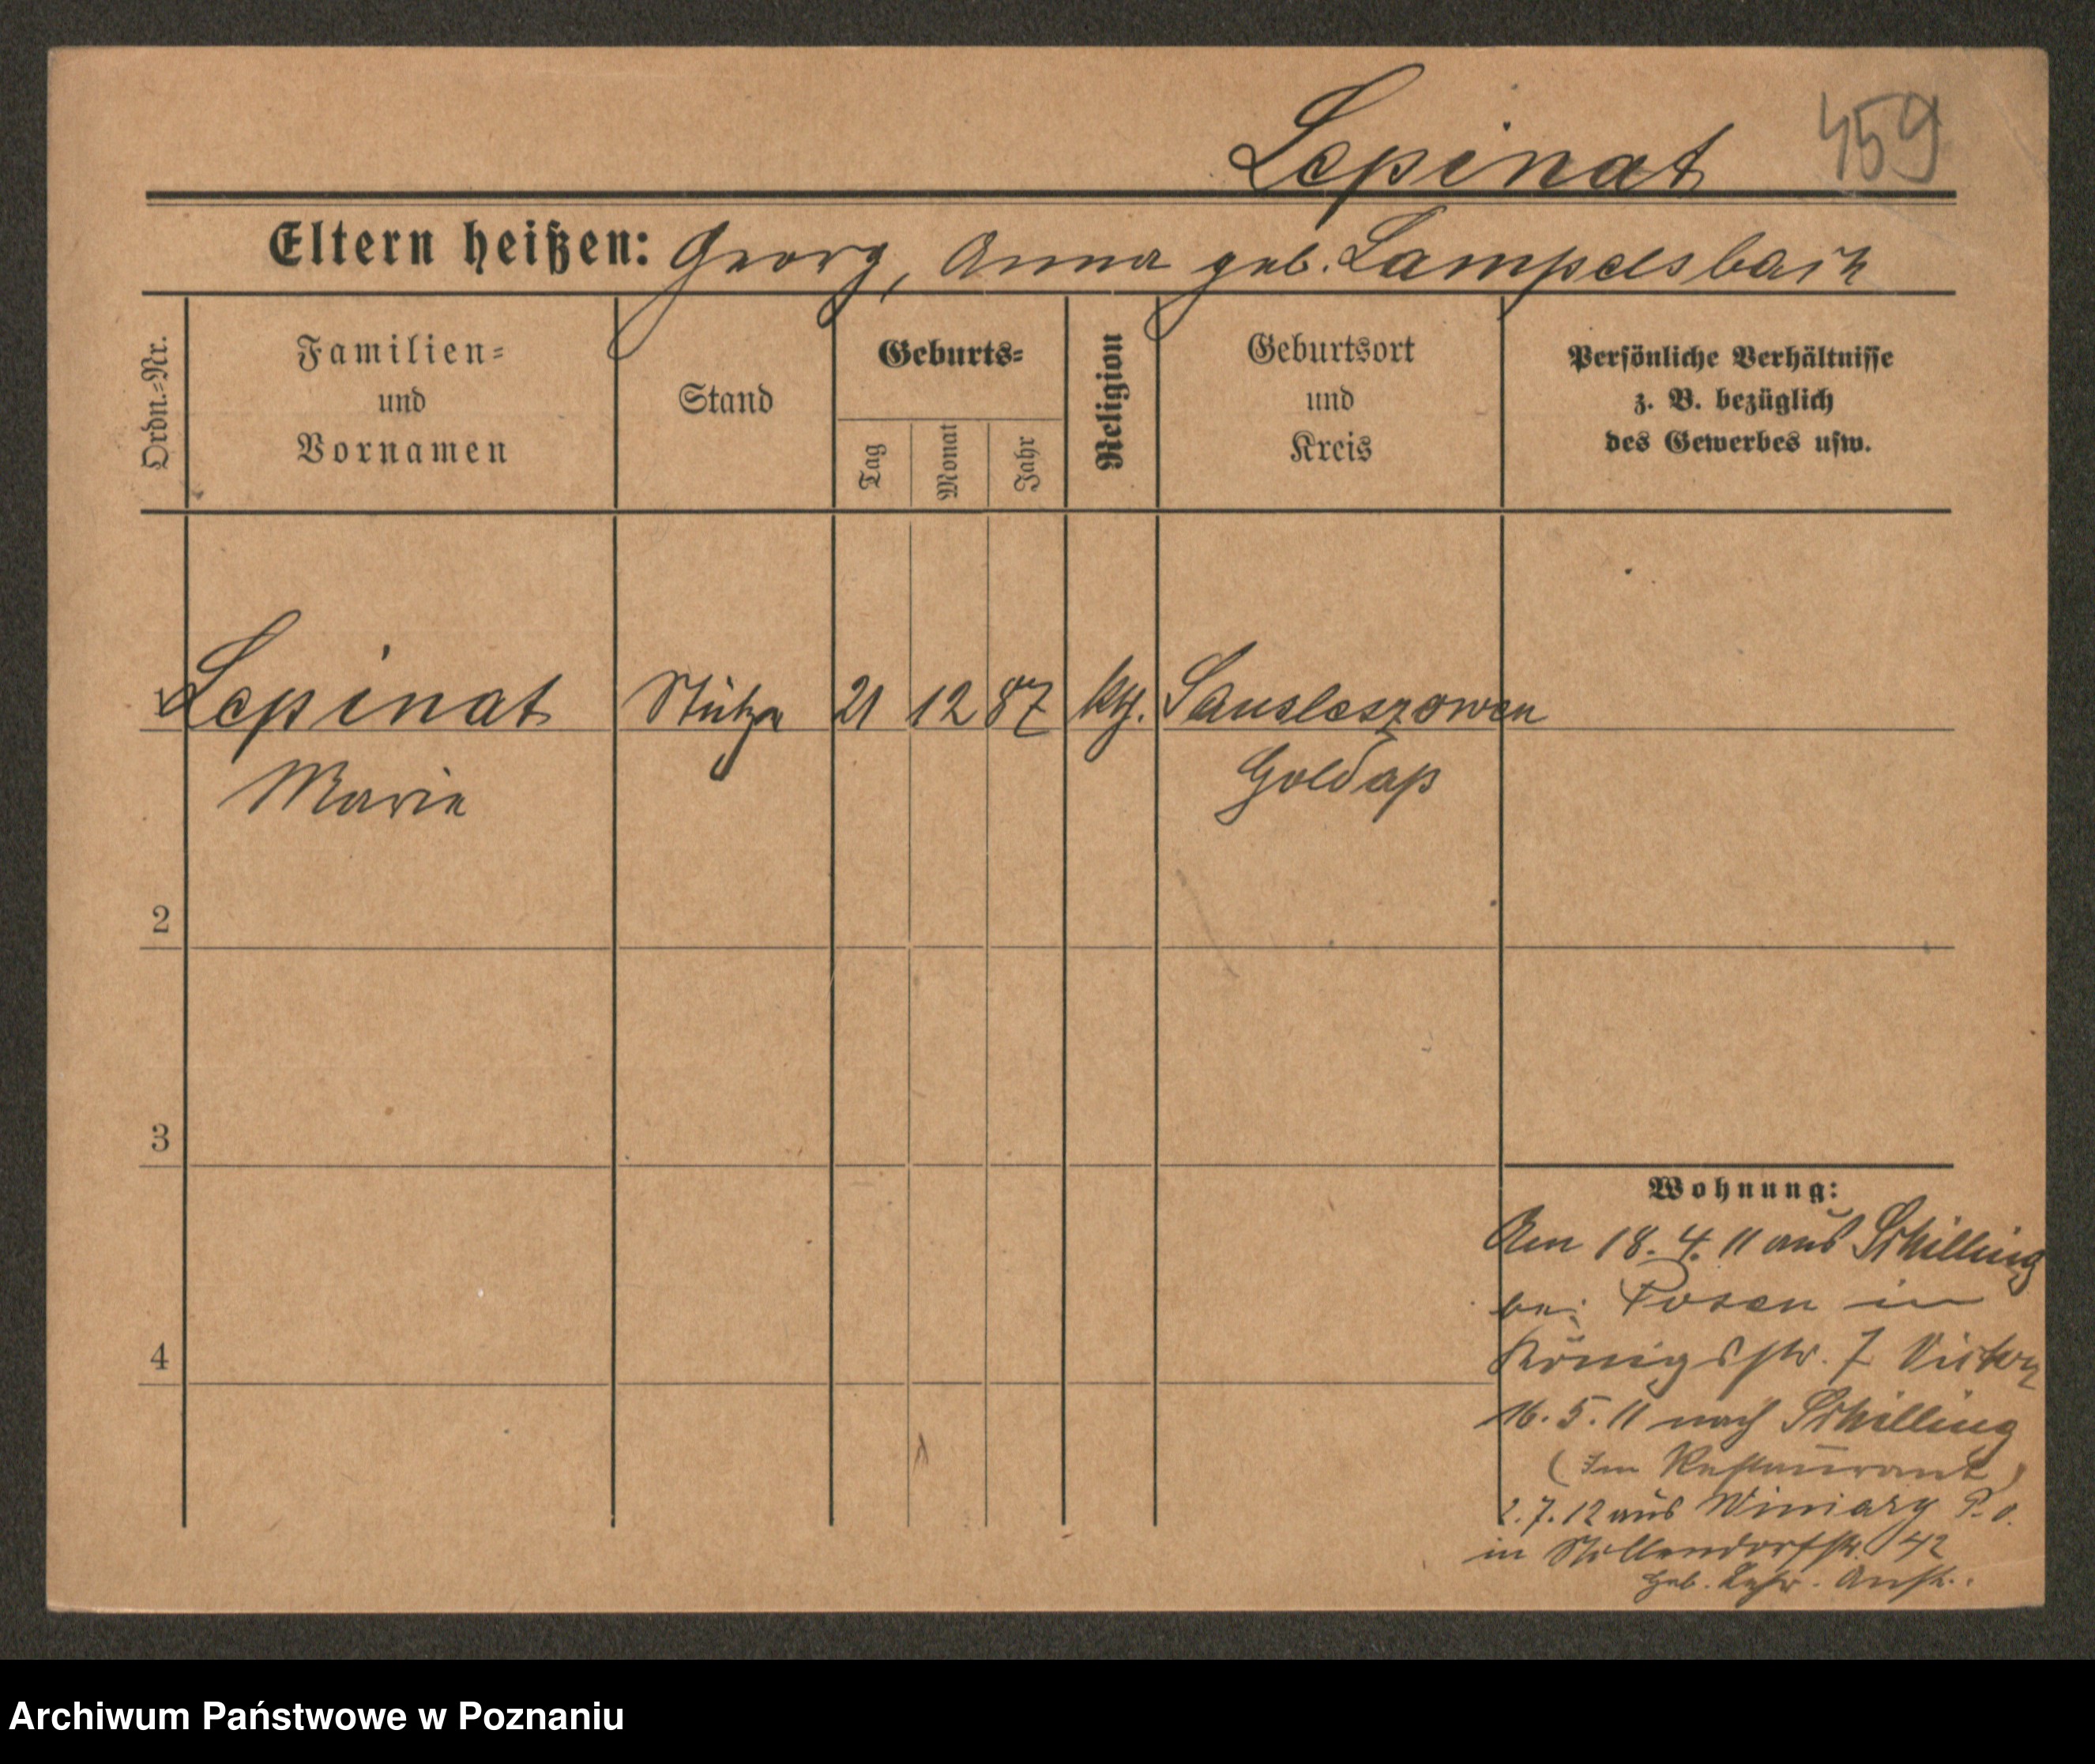 Lepinat 459
Eltern heißen: Georg, Anna geb. Lampelsbach
Ordn.-Nr.
Familien-
und
Vornamen
Stand
Geburts-
Tag
Monat
Jahr
Religion
Geburtsort
und
Kreis
Persönliche Verhältnisse
z. B. bezüglich
des Gewerbes usw.
Lepinat Stütze 21 12 87
Marie Goldap
2
3
4
Wohnung:
Am 18. 4. 11 aus Schilling
bei Posen in
Königsstr. 7
16. 5. 11 nach Schilling
(Im Restaurant)
2. 7. 12 aus Winiary P. O.
in Nollendorfstr. 42
Archiwum Państwowe w Poznaniu